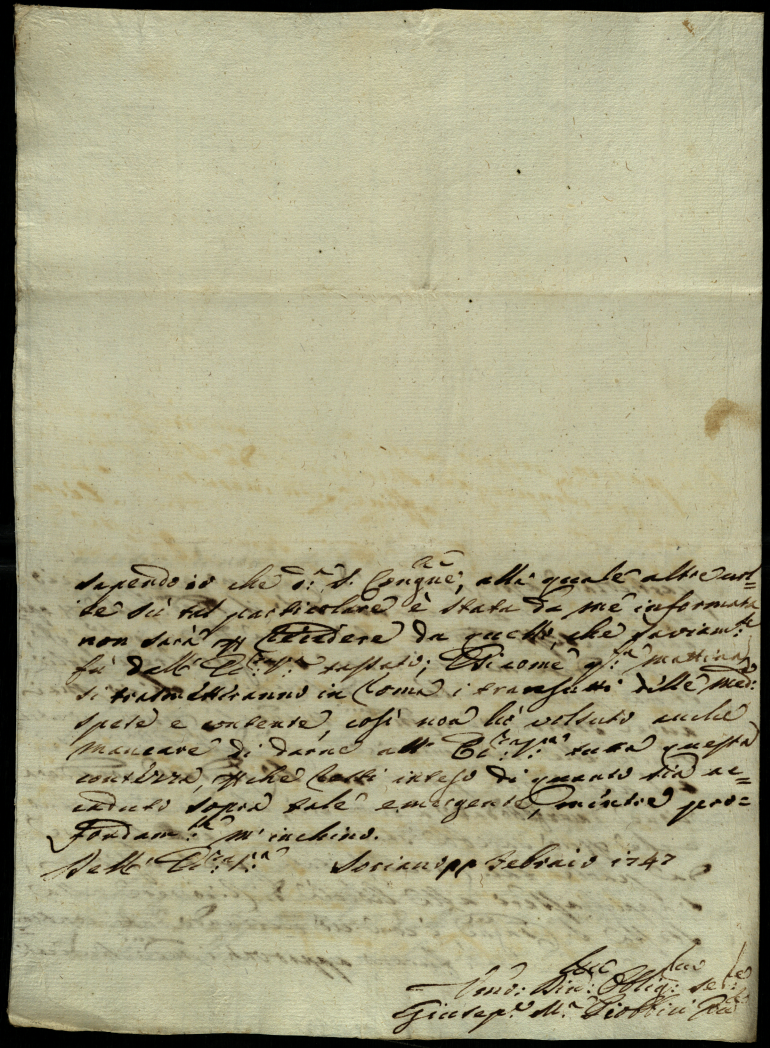 sapendo io che d.ª S. Congne, alla quale altre vol=
te sù tal particolare è stata da mé informata
non sarà p recedere da quello, che saviam.te
fù dall' Ecc.za V.ra tassato; E sicome q.ta mattina
si trasmetteranno in Roma i transunti delle med:
spese e contente, così non hò volsuto anche
mancare di darne all' Ecc.za V.ra tutta questa
contezza, p che resti inteso di quanto sia ac=
caduto sopra tale emergente, mentre pro=
fondam.te m'inchino.
Dell' Ecc.za V.ra Soriano pp Febraio 1747
Umo: Div: Obblig: Ser:
Giusep.e M.ª